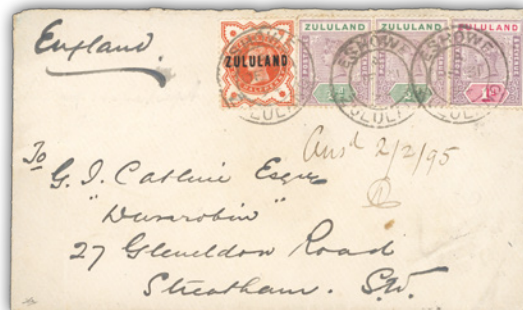 England.
ZULULAND
ZULULAND
ZULULAND
ZULULAND
ESHOWE
ESHOWE
Ansd 2/2/95
To
G. I. Esqre
"Dunrobin"
27 Gleneldon Road
Streatham. S.W.